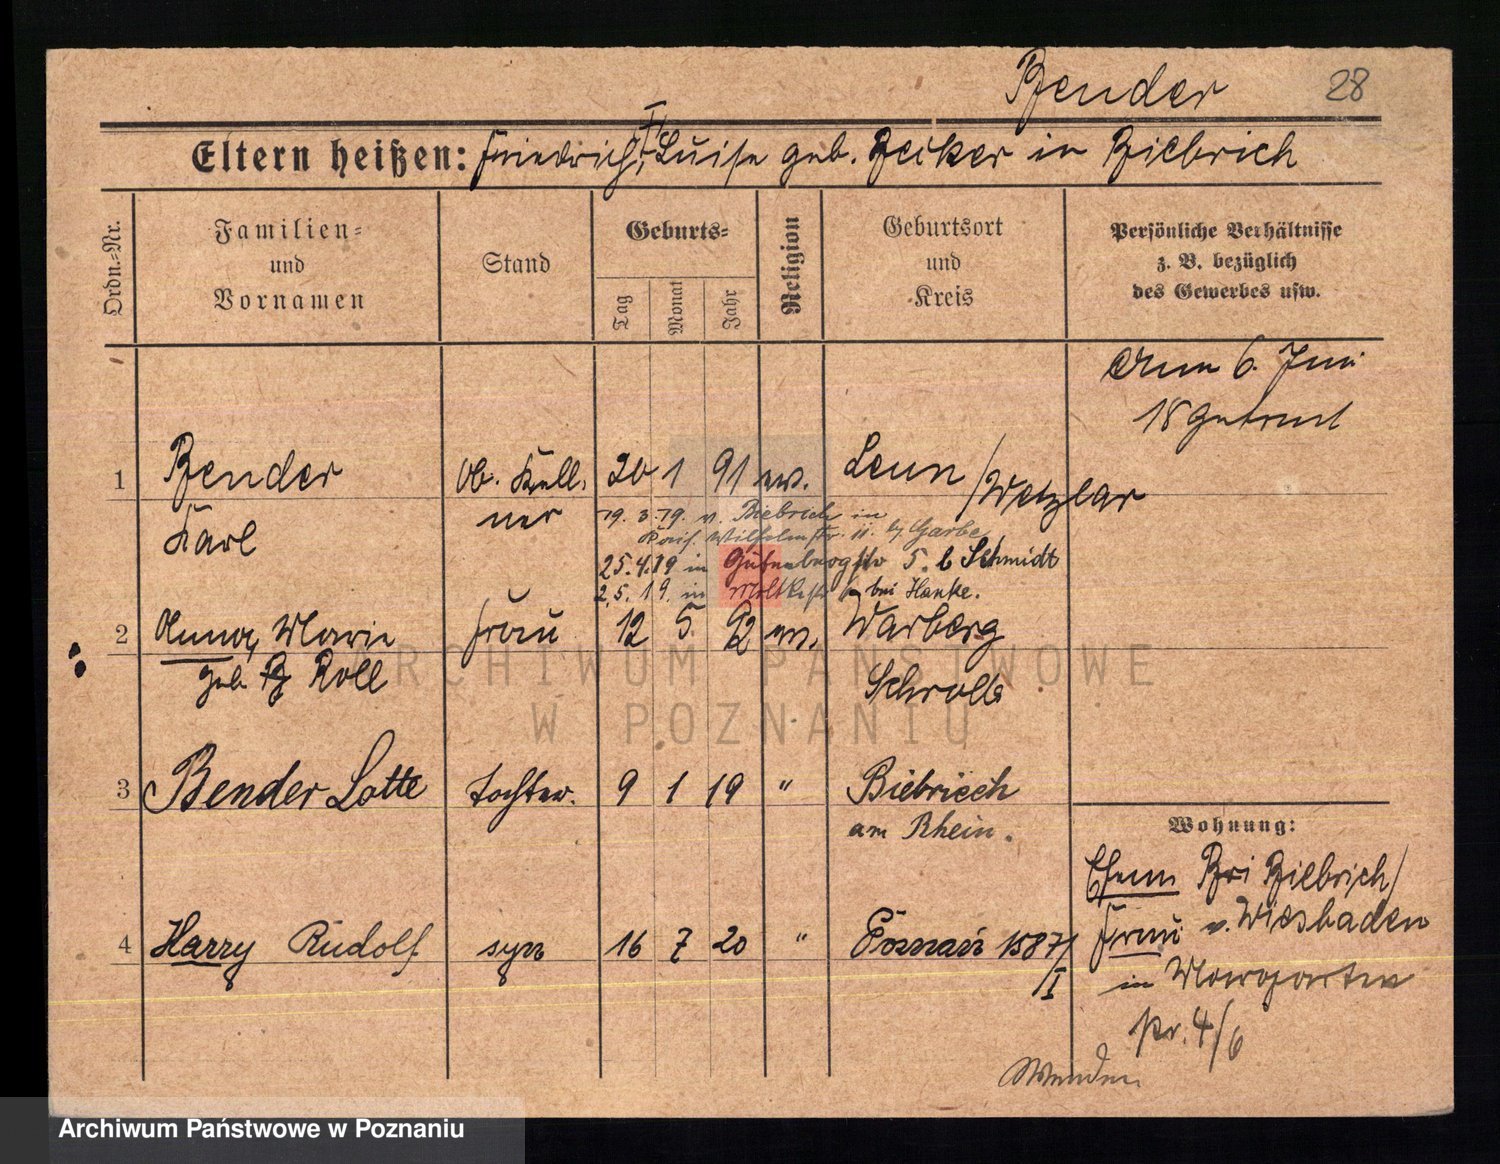 Bender 28
Eltern heißen: Friedrich, Luise geb. Becker in Biebrich
Ordn.-Nr.
Familien-
und
Vornamen
Stand
Geburts-
Tag
Monat
Jahr
Religion
Geburtsort
und
Kreis
Persönliche Verhältnisse
z. B. bezüglich
des Gewerbes usw.
am 6. Juni
18 getraut
1 Bender Ob. Kell- 20 1 91 ev. Leun / Wetzlar
Karl ner
19. 3. 19. v. Biebrich in
Wilhelmstr. 11. bei Garbe
25.4.19 in Gutenbergstr 5. b Schmidt
2.5.19. in Moltkestr bei Hanke.
2 Anna, Marie Frau 12 5 92 ev. Warberg
geb. Roll
3 Bender Lotte Tochter. 9 1 19 " Biebrich
am Rhein.
Wohnung:
Ehem Biebrich/
Frau v. Wiesbaden
4 Harry Rudolf syn 16 7 20 " Poznań 1587/
I
in
4/6
Wenden
ARCHIWUM PAŃSTWOWE
W POZNANIU
Archiwum Państwowe w Poznaniu